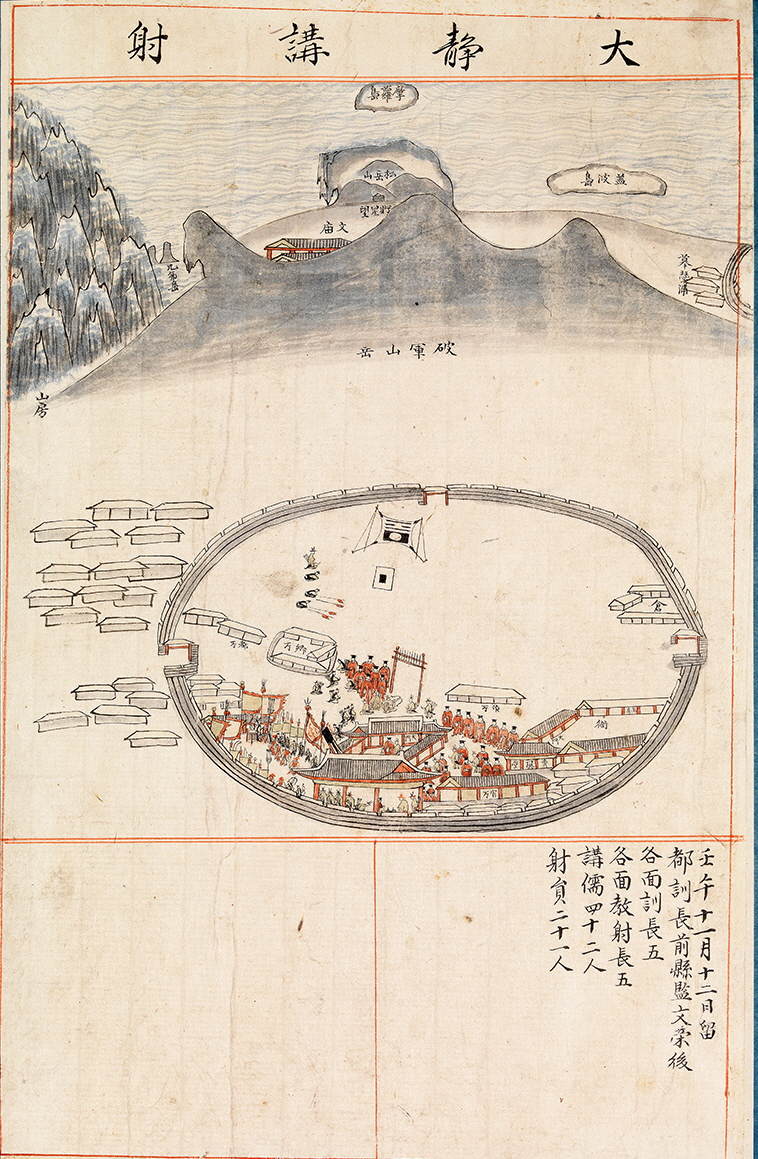 大靜講射
摩羅島
松岳山
盖波島
文庙
兄弟島
慕瑟浦
破軍山岳
山房
倉
壬午十一月十二日留
都訓長前縣監文榮後
各面訓長五
各面教射長五
講儒四十二人
射員二十一人